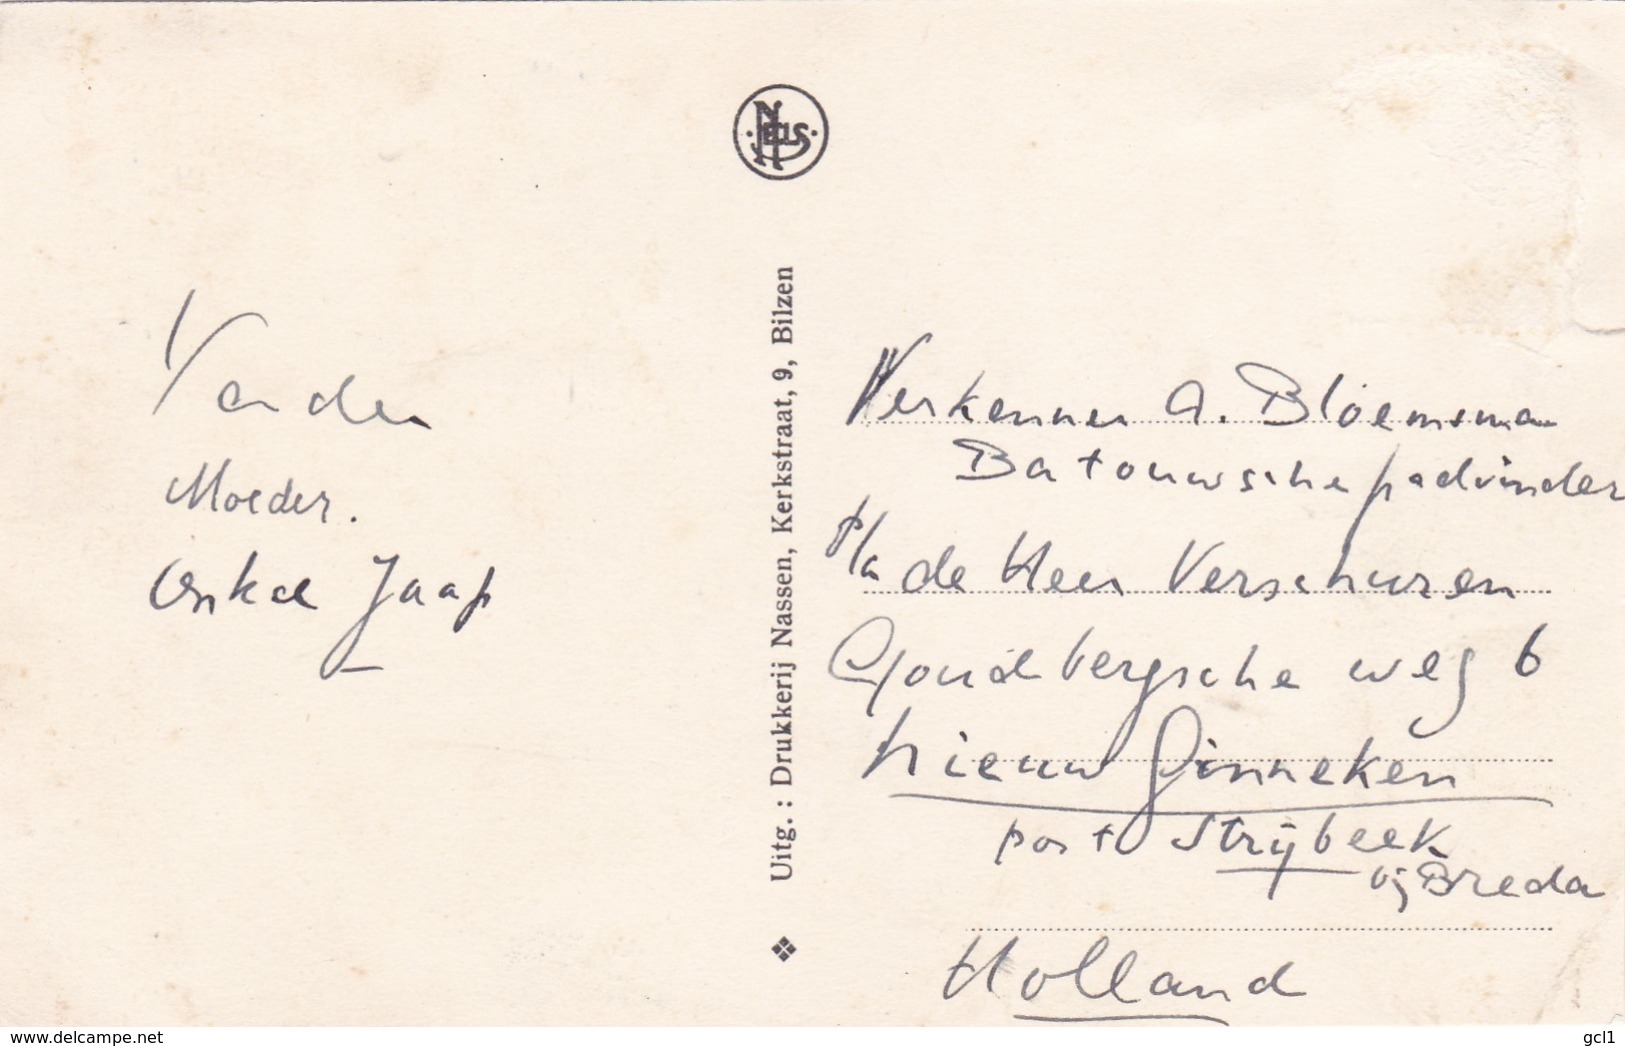 NELS
Vander
Moeder.
Onkel Jaap
Uitg. : Drukkerij Nassen, Kerkstraat, 9, Bilzen
Verkenner A. Bloemsma
Batouwsche padvinder
p/a de Heer Verschuren
Goudbergsche weg 6
Nieuw Ginneken
post Strijbeek
bij Breda
Holland
www.delcampe.net
gcl1